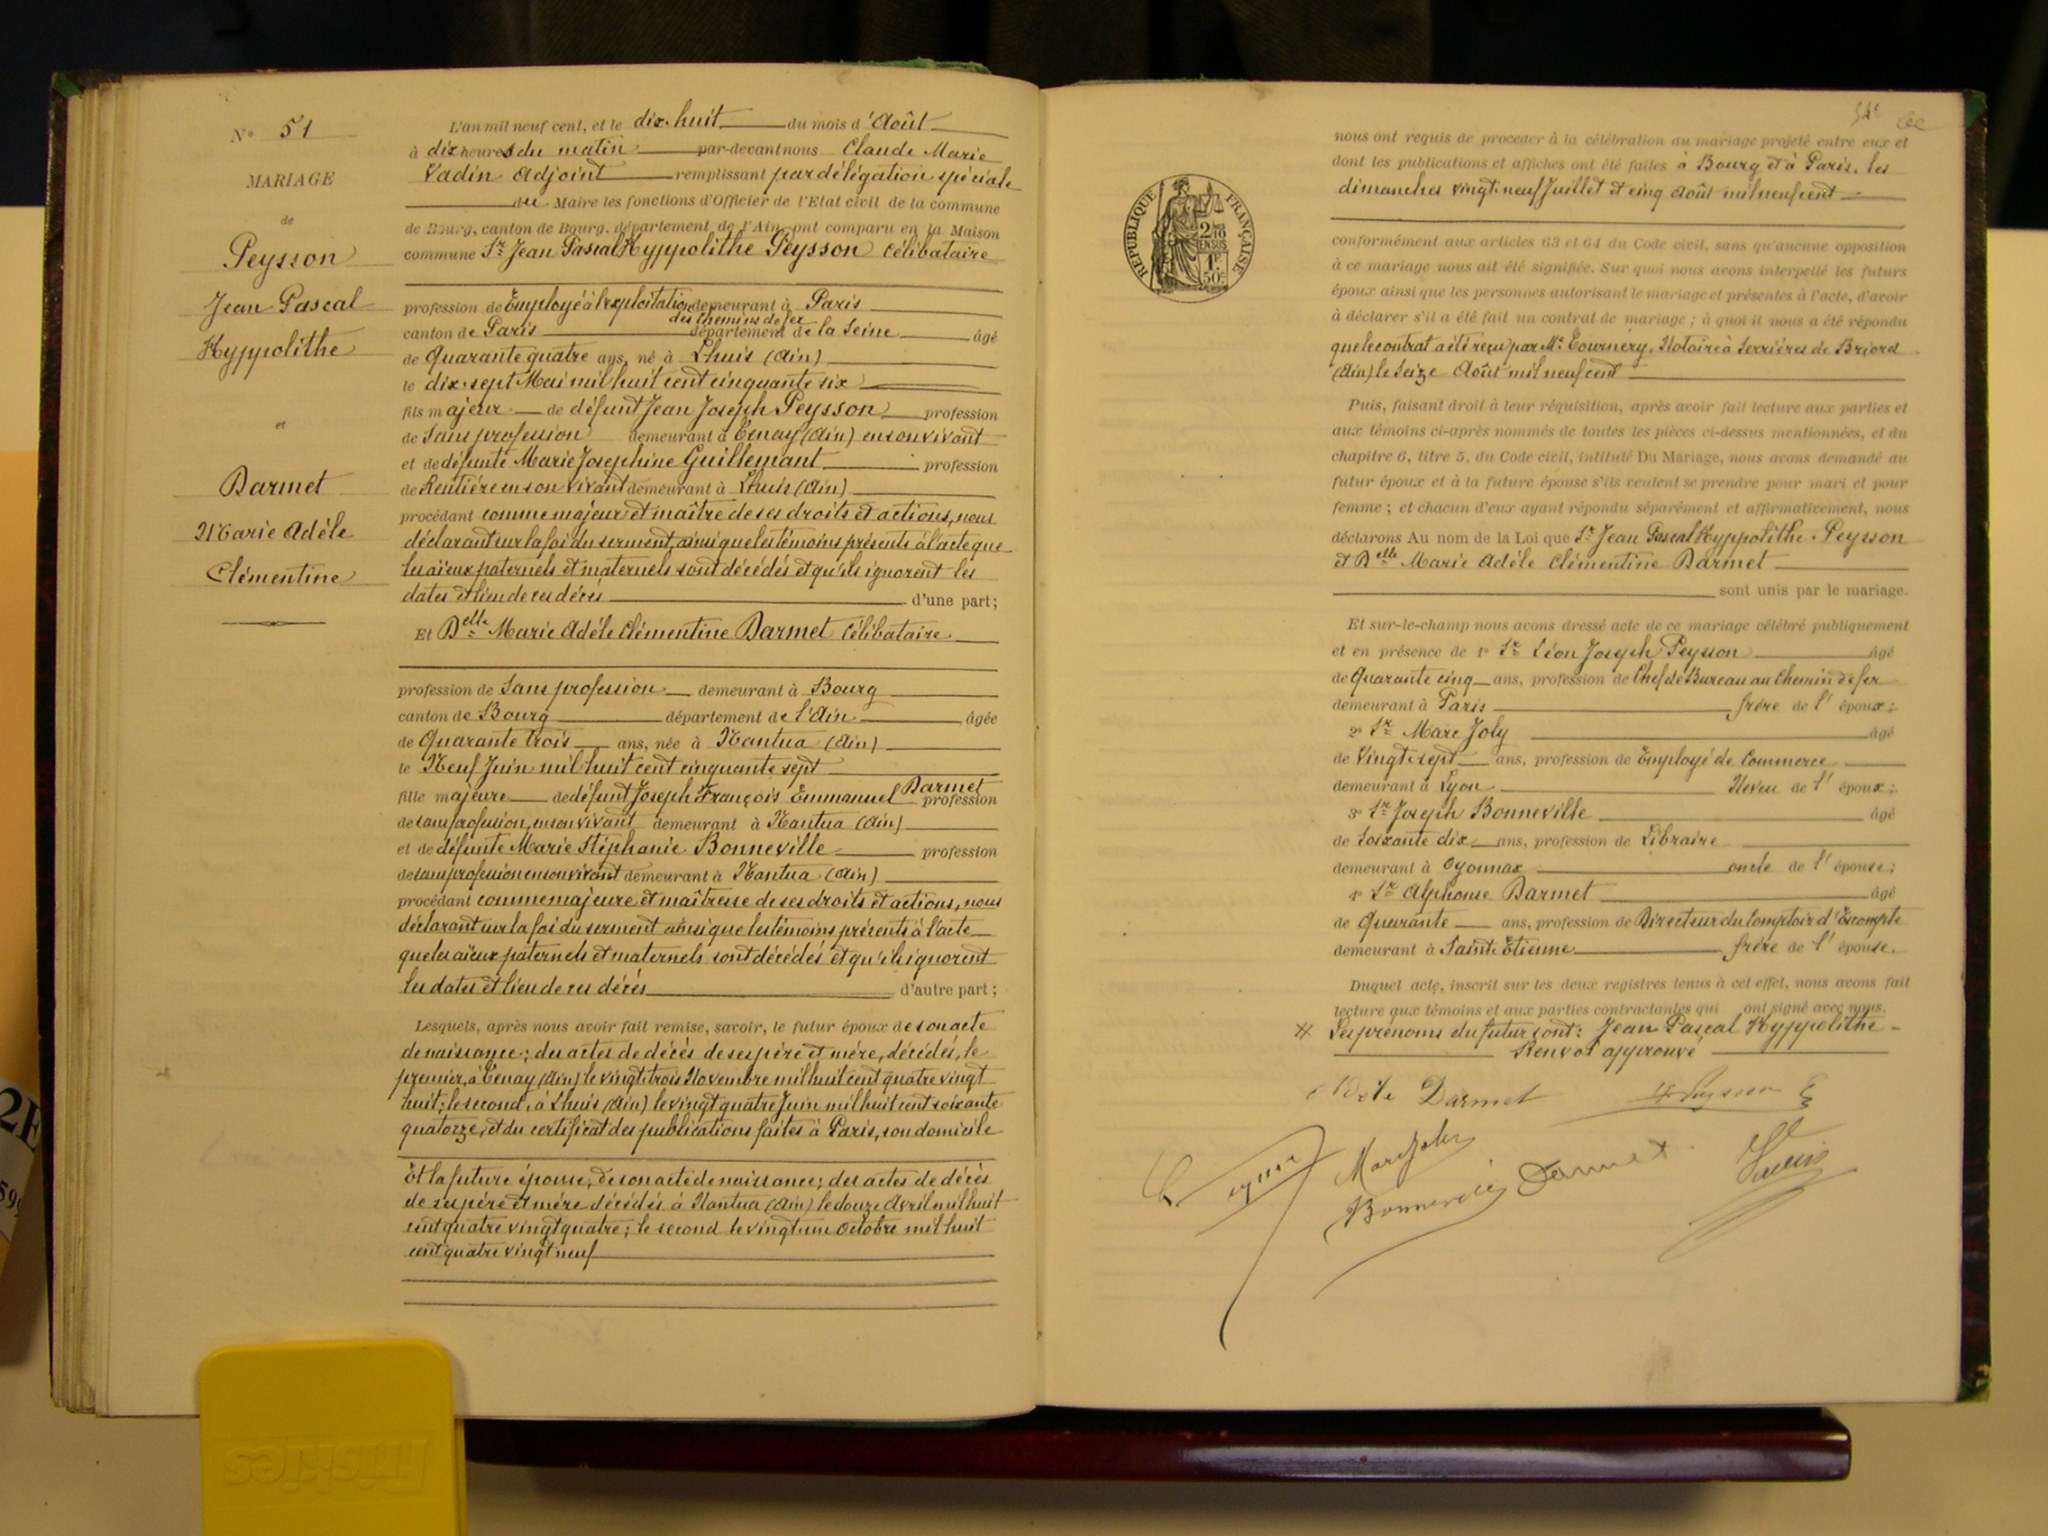 N° 51
MARIAGE
de
Peysson
Jean Pascal
Hyppolithe
et
Darmet
Marie Adèle
Clémentine
L'an mil neuf cent, et le dix-huit du mois d'Août
à dix heures du matin par-devant nous Claude Marie
Vadin Adjoint remplissant par délégation spéciale
du Maire les fonctions d'Officier de l'Etat civil de la commune
de Bourg, canton de Bourg, département de l'Ain, ont comparu en la Maison
commune Sr Jean Pascal Hyppolithe Peysson célibataire
profession de Employé à l'exploitation demeurant à Paris
des Chemins de fer
canton de Paris département de la Seine âgé
de Quarante quatre ans, né à Lhuis (Ain)
le dix-sept Mai mil huit cent cinquante six
fils majeur de défunt Jean Joseph Peysson profession
de Sans profession demeurant à Tenay (Ain) en son vivant
et de défunte Marie Joséphine Guillemant profession
de Rentière en son vivant demeurant à Lhuis (Ain)
procédant comme majeur et maître de ses droits et actions, nous
déclarant sur la foi du serment, ainsi que les témoins présents à l'acte que
les aïeux paternels et maternels sont décédés et qu'ils ignorent les
dates et lieu de ces décès d'une part;
Et Delle Marie Adèle Clémentine Darmet célibataire
profession de Sans profession demeurant à Bourg
canton de Bourg département de l'Ain âgée
de Quarante trois ans, née à Nantua (Ain)
le Neuf Juin mil huit cent cinquante sept
fille majeure de défunt Joseph François Emmanuel Darmet profession
de sans profession, en son vivant demeurant à Nantua (Ain)
et de défunte Marie Stéphanie Bonneville profession
de sans profession en son vivant demeurant à Nantua (Ain)
procédant comme majeure et maîtresse de ses droits et actions, nous
déclarant sur la foi du serment ainsi que les témoins présents à l'acte
que les aïeux paternels et maternels sont décédés et qu'ils ignorent
les dates et lieu de ces décès d'autre part;
Lesquels, après nous avoir fait remise, savoir, le futur époux de son acte
de naissance; des actes de décès de ses père et mère, décédés, le
premier, à Tenay (Ain) le vingt trois Novembre mil huit cent quatre vingt
huit; le second, à Lhuis (Ain) le vingt quatre Juin mil huit cent soixante
quatorze, et du certificat des publications faites à Paris, son domicile
Et la future épouse, de son acte de naissance; des actes de décès
de ses père et mère décédés à Nantua (Ain) le douze Avril mil huit
cent quatre vingt quatre; le second le vingt un Octobre mil huit
cent quatre vingt neuf
REPUBLIQUE FRANÇAISE
2/10
EN SUS
1F
50c
nous ont requis de procéder à la célébration du mariage projeté entre eux et
dont les publications et affiches ont été faites à Bourg et à Paris, les
dimanches vingt-neuf Juillet et cinq Août mil neuf cent
conformément aux articles 63 et 64 du Code civil, sans qu'aucune opposition
à ce mariage nous ait été signifiée. Sur quoi nous avons interpellé les futurs
époux ainsi que les personnes autorisant le mariage et présentes à l'acte, d'avoir
à déclarer s'il a été fait un contrat de mariage; à quoi il nous a été répondu
que le contrat a été reçu par Me Tournery, Notaire à Serrières de Briord
(Ain) le Seize Août mil neuf cent
Puis, faisant droit à leur réquisition, après avoir fait lecture aux parties et
aux témoins ci-après nommés de toutes les pièces ci-dessus mentionnées, et du
chapitre 6, titre 5, du Code civil, intitulé Du Mariage, nous avons demandé au
futur époux et à la future épouse s'ils veulent se prendre pour mari et pour
femme; et chacun d'eux ayant répondu séparément et affirmativement, nous
déclarons Au nom de la Loi que Sr Jean Pascal Hyppolithe Peysson
et Delle Marie Adèle Clémentine Darmet
sont unis par le mariage.
Et sur-le-champ nous avons dressé acte de ce mariage célébré publiquement
et en présence de 1° Sr Léon Joseph Peysson âgé
de Quarante cinq ans, profession de Chef de Bureau au Chemin de fer
demeurant à Paris frère de l'époux;
2° Sr Marc Joly âgé
de Vingt-sept ans, profession de Employé de Commerce
demeurant à Lyon Neveu de l'époux;
3° Sr Joseph Bonneville âgé
de Soixante dix ans, profession de Libraire
demeurant à Oyonnax oncle de l'épouse;
4° Sr Alphonse Darmet âgé
de Quarante ans, profession de Directeur du Comptoir d'Escompte
demeurant à Saint-Etienne frère de l'épouse.
Duquel acte, inscrit sur les deux registres tenus à cet effet, nous avons fait
lecture aux témoins et aux parties contractantes qui ont signé avec nous.
Les prénoms du futur sont: Jean Pascal Hyppolithe
Renvoi approuvé
Adèle Darmet
H Peysson
Marc Joly
Bonneville
Darmet